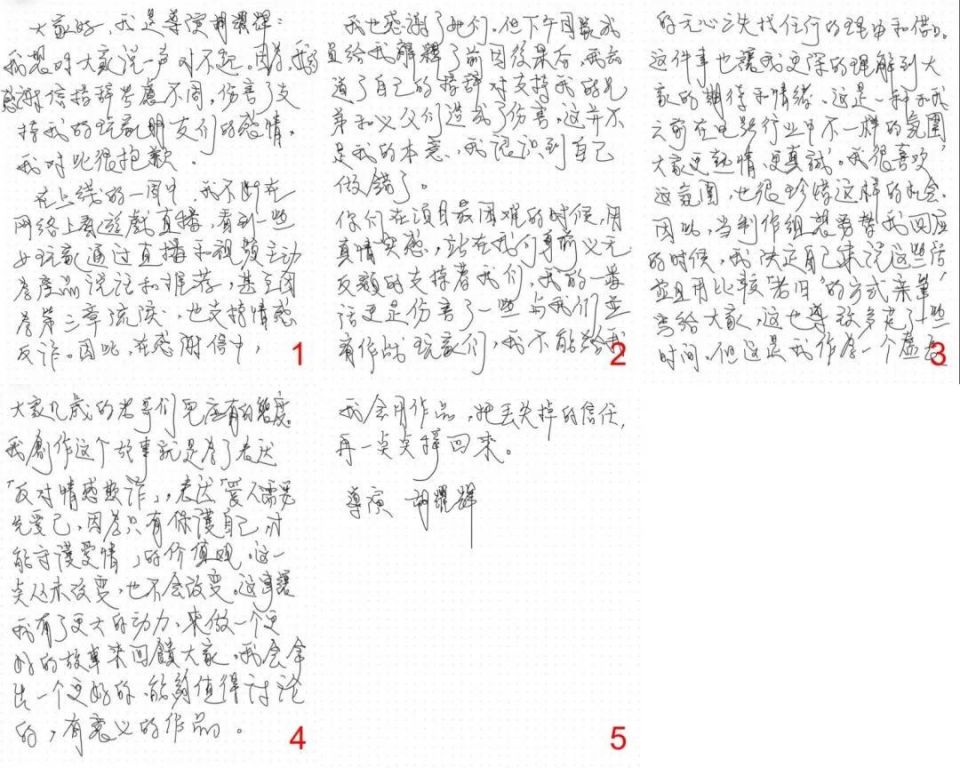 大家好，我是導演胡耀輝：
我想对大家说一声对不起。因為我的
感謝信措辞考慮不周，伤害了支
持我的玩家朋友们的感情。
我对此很抱歉。
在上线的一周中，我不断在
网络上看遊戲直播，看到一些
女玩家通过直播和视频主动
為產品说话和推荐，甚至因
為第三章流淚，也支持情感
反诈。因此，在感谢信中，
1
我也感謝了她们。但下午因裁成
員给我解釋了前因後果后，我知
道了自己的措辞对支持我的兄
弟和义父们造成了伤害。这并不
是我的本意，我認识到自己
做错了。
你们在項目最困难的时候，用
真情实感，站在我们身前义无
反顧的支持着我们，我的一番
话更是伤害了一些与我们並
肩作战玩家们，我不能给我
2
的无心之失找任何的理由和借口。
这件事也讓我更深的理解到大
家的期待和情緒。这是一种和我
之前在电影行业中不一样的氛圍，
大家更熱情，更真誠。我很喜欢
这氛圍，也很珍惜这样的机会。
因此，当制作组想要帮我回应
的时候，我决定自己来说这些话，
並且用比較“老旧”的方式亲筆
寫给大家，这也導致多花了一些
时间。但这是我作為一个虚长
3
大家几歲的老哥们兒应有的態度。
我創作这个故事就是為了表达
「反对情感欺诈」，表达「爱人需要
先爱己，因為只有保護自己，才
能守護愛情」的价值观。这一
点从未改变，也不会改变。这事讓
我有了更大的动力，来做一个更
好的故事来回饋大家。我会拿
出一个更好的、能夠值得讨论
的，有意义的作品。
4
我会用作品，把丢失掉的信任，
再一点点掙回来。
導演 胡耀輝
5